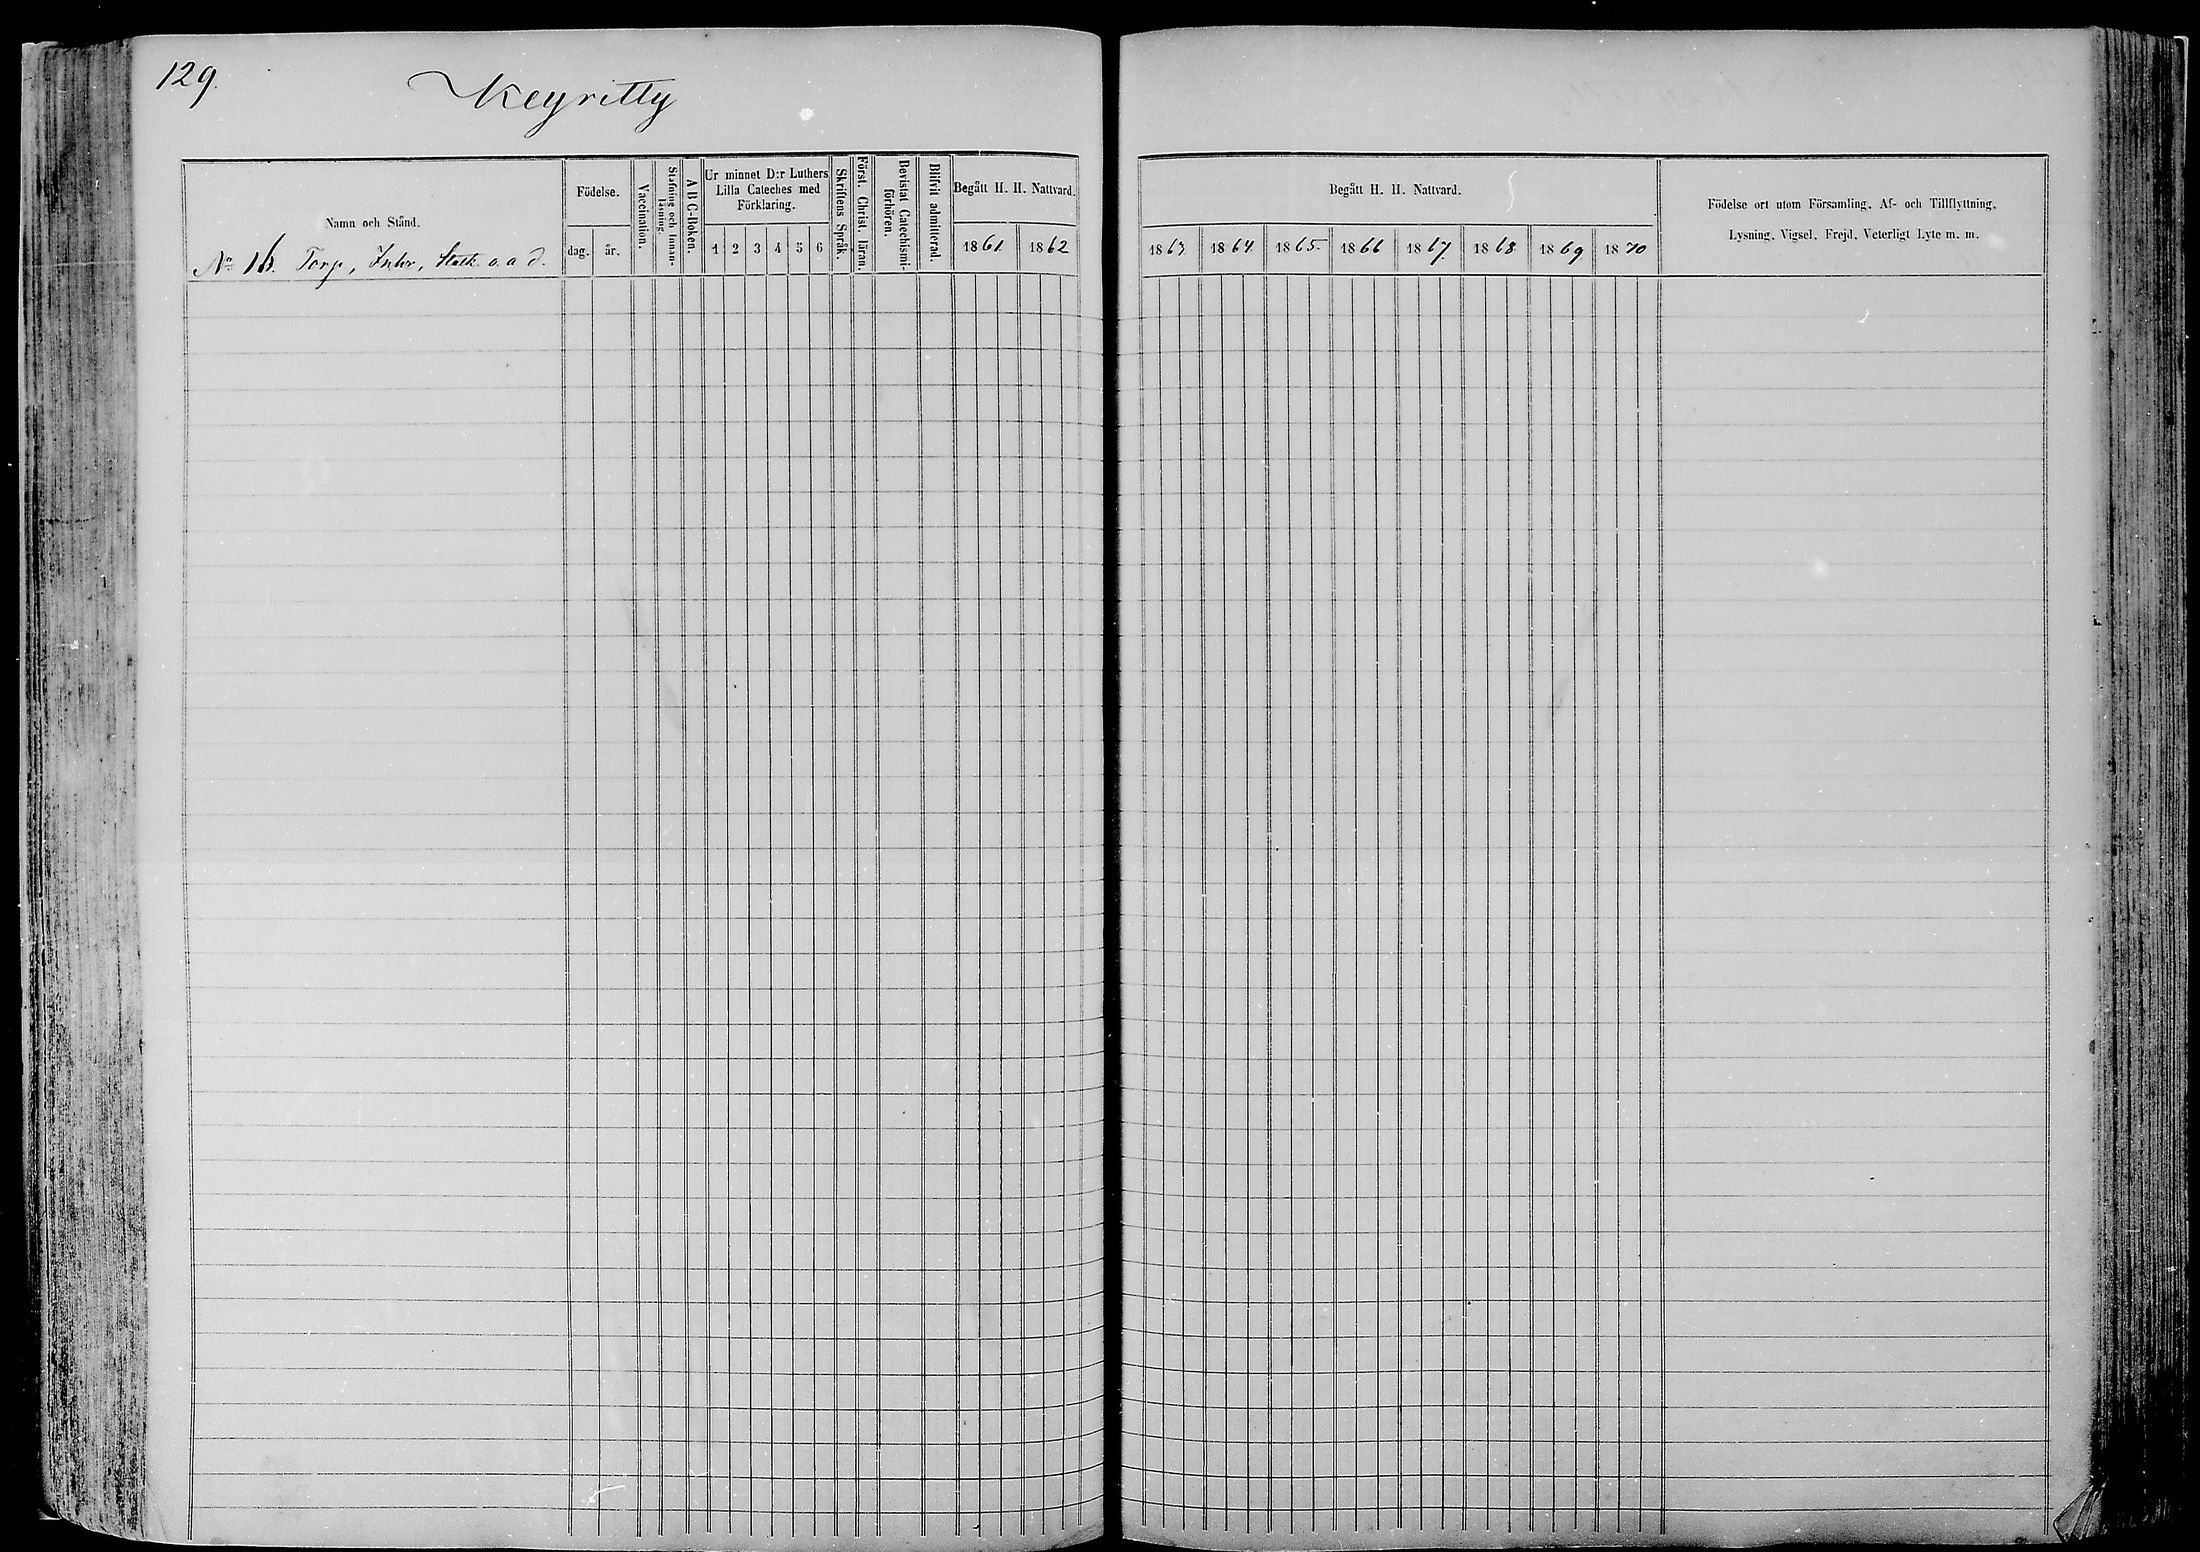 129.
Keyritty
Namn och Stånd.
No 16. Torp, Inhr, Statk. o. a d.
Födelse.
dag.
år.
Vaccination.
Stafning och Innan-
läsning.
A B C-Boken.
Ur minnet D:r Luthers
Lilla Cateches med
Förklaring.
1 2 3 4 5 6
Skriftens Språk.
Först. Christ. läran.
Bevistat Catechismi-
förhören.
Blifvit admitterad.
Begått H. H. Nattvard.
1861. 1862
Begått H. H. Nattvard.
1863 1864 1865. 1866 1867. 1868 1869 1870
Födelse ort utom Församling, Af- och Tillflyttning,
Lysning, Vigsel, Frejd, Veterligt Lyte m. m.